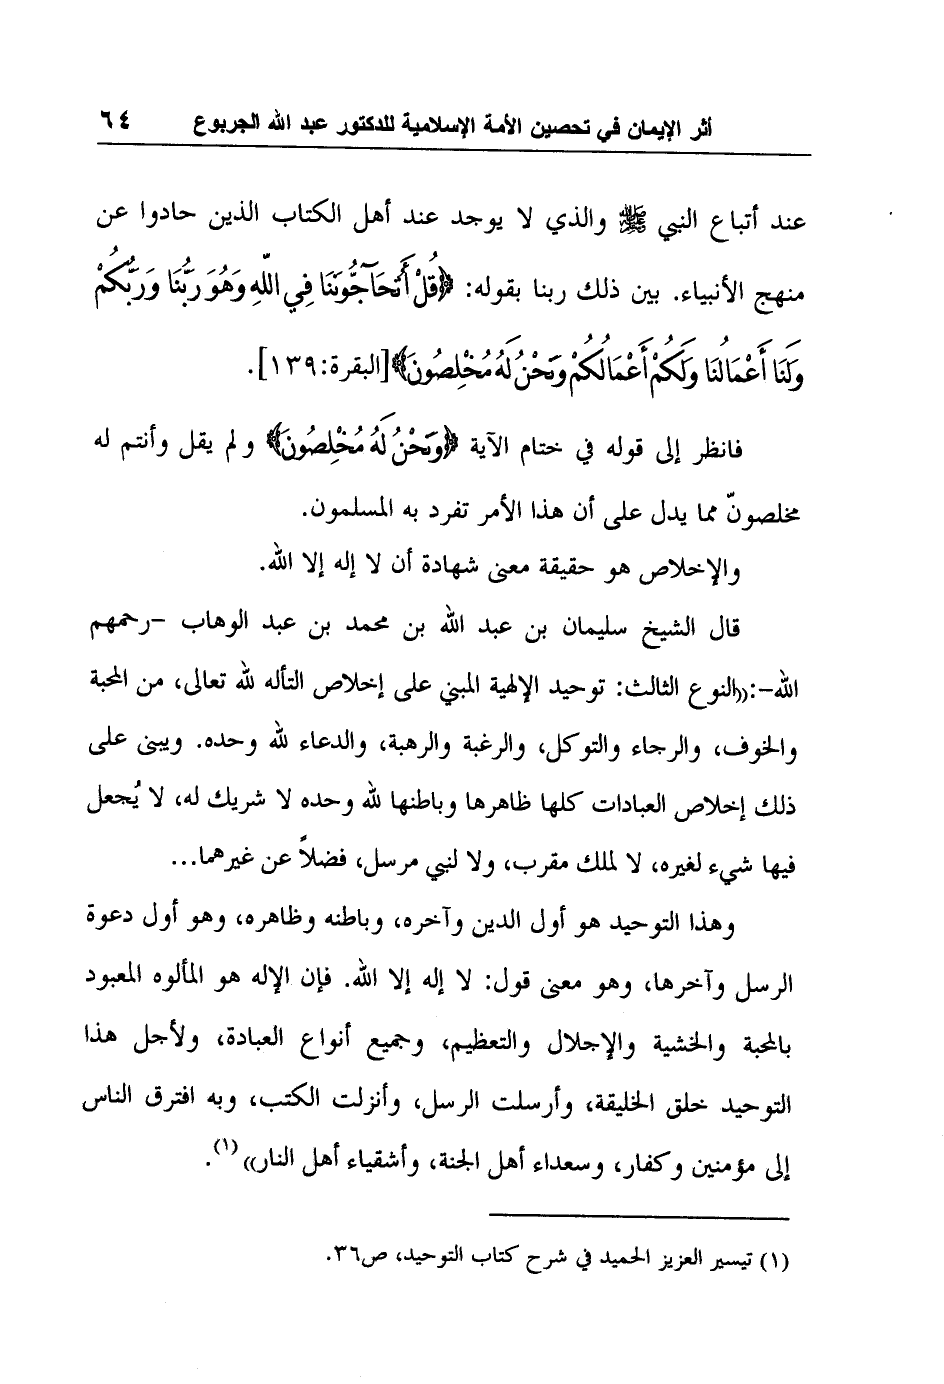 أثر الإيمان في تحصين الأمة الإسلامية للدكتور عبد الله الجربوع ٦٤
عند أتباع النبي ﷺ والذي لا يوجد عند أهل الكتاب الذين حادوا عن
منهج الأنبياء. بين ذلك ربنا بقوله: ﴿قُلْ أَتُحَآجُّونَنَا فِي اللّهِ وَهُوَ رَبُّنَا وَرَبُّكُمْ
وَلَنَا أَعْمَالُنَا وَلَكُمْ أَعْمَالُكُمْ وَنَحْنُ لَهُ مُخْلِصُونَ﴾[البقرة:١٣٩].
فانظر إلى قوله في ختام الآية ﴿وَنَحْنُ لَهُ مُخْلِصُونَ﴾ ولم يقل وأنتم له
مخلصونّ مما يدل على أن هذا الأمر تفرد به المسلمون.
والإخلاص هو حقيقة معنى شهادة أن لا إله إلا الله.
قال الشيخ سليمان بن عبد الله بن محمد بن عبد الوهاب -رحمهم
الله-:((النوع الثالث: توحيد الإلهية المبني على إخلاص التأله لله تعالى، من المحبة
والخوف، والرجاء والتوكل، والرغبة والرهبة، والدعاء لله وحده. ويبنى على
ذلك إخلاص العبادات كلها ظاهرها وباطنها لله وحده لا شريك له، لا يُجعل
فيها شيء لغيره، لا لملك مقرب، ولا لنبي مرسل، فضلاً عن غيرهما...
وهذا التوحيد هو أول الدين وآخره، وباطنه وظاهره، وهو أول دعوة
الرسل وآخرها، وهو معنى قول: لا إله إلا الله. فإن الإله هو المألوه المعبود
بالمحبة والخشية والإجلال والتعظيم، وجميع أنواع العبادة، ولأجل هذا
التوحيد خلق الخليقة، وأرسلت الرسل، وأنزلت الكتب، وبه افترق الناس
إلى مؤمنين وكفار، وسعداء أهل الجنة، وأشقياء أهل النار))(١).
(١) تيسير العزيز الحميد في شرح كتاب التوحيد، ص٣٦.